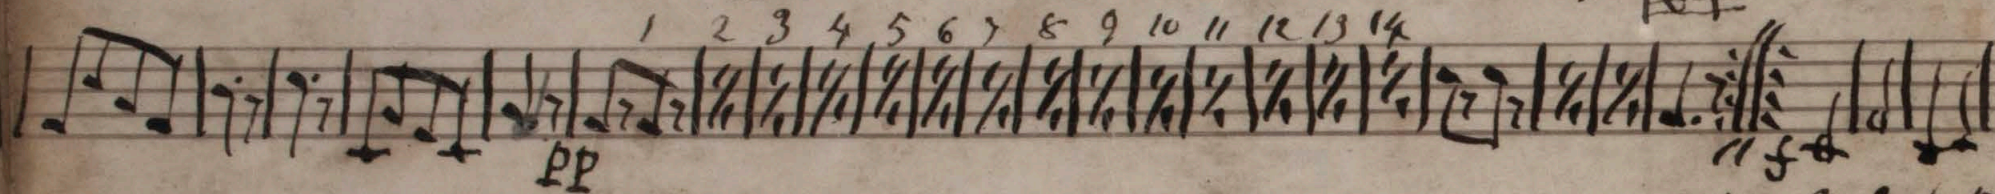 1 2 3 4 5 6 7 8 9 10 11 12 13 14
pp f